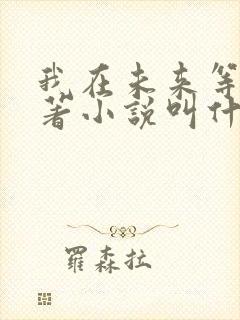 我在未来等
著小説叫什
羅森拉